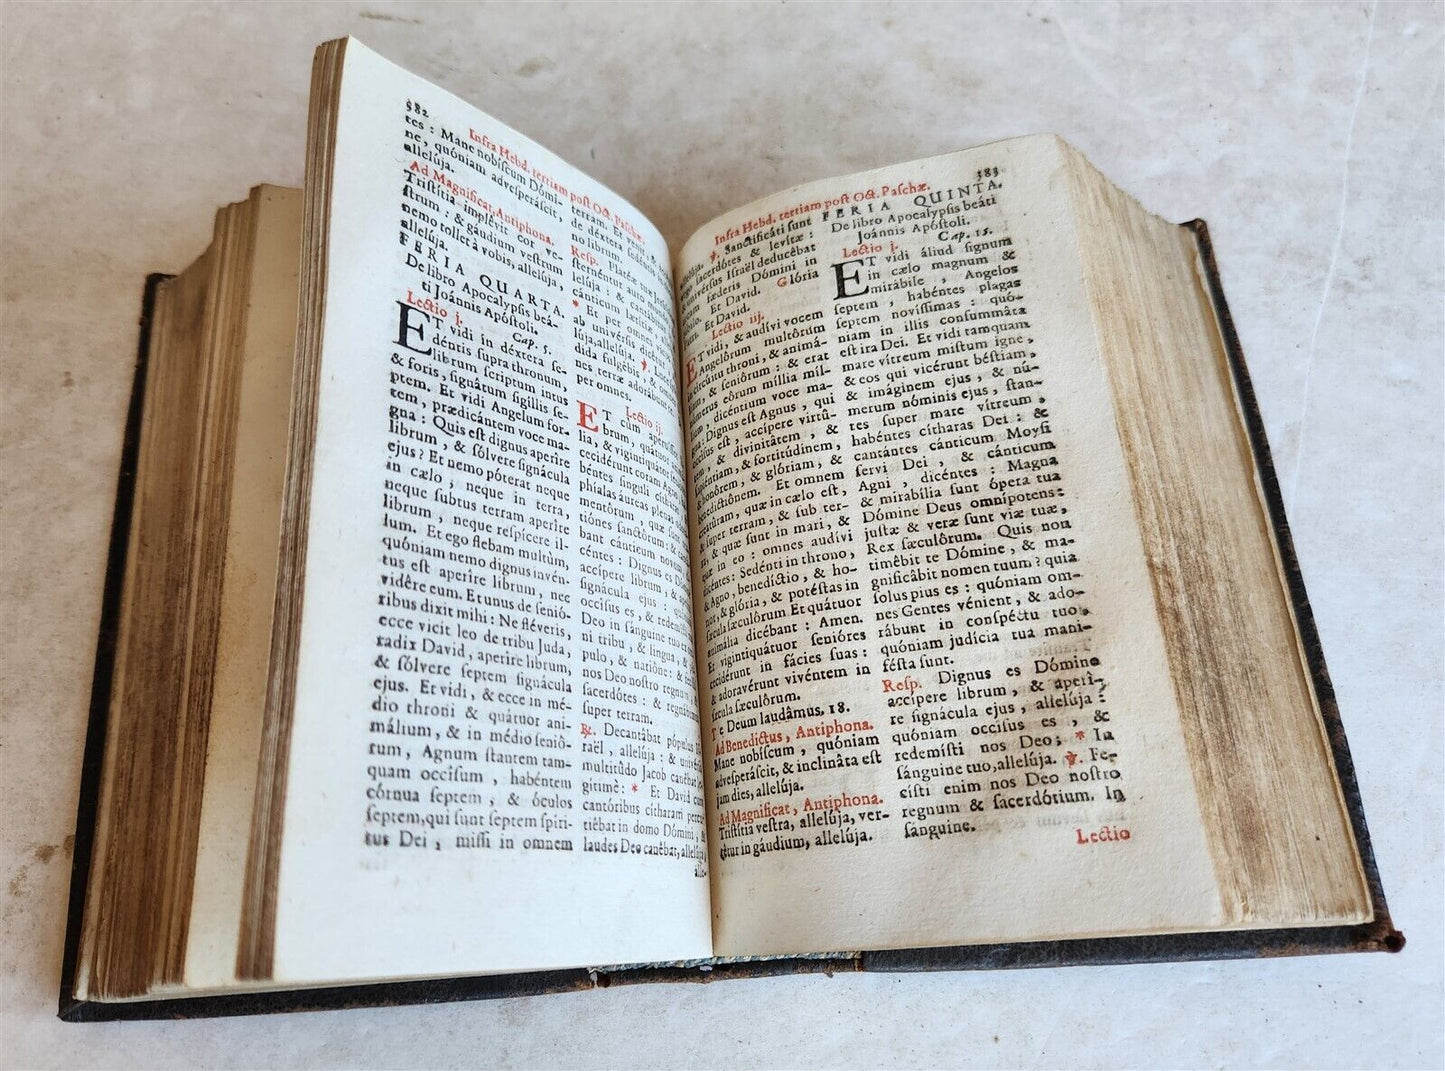 582
Infra Hebd. tertiam post Oct. Paschæ.
tes : Mane nobíſcum Dómi-
ne, quóniam adveſperáſcit,
allelúja.
Ad Magnificat, Antiphona.
Triſtítia implêvit cor ve-
ſtrum : & gáudium veſtrum
nemo tollet à vobis, allelúja,
allelúja.
FERIA QUARTA.
De libro Apocalypſis beá-
ti Joánnis Apóſtoli.
Lectio j. Cap. 5.
ET vidi in déxtera ſe-
déntis supra thronum,
librum ſcriptum intus
& foris, ſignâtum ſigillis ſe-
ptem. Et vidi Angelum for-
tem, prædicántem voce ma-
gna : Quis eſt dignus aperîre
librum, & ſólvere ſignácula
ejus ? Et nemo póterat neque
in cælo, neque in terra,
neque ſubtus terram aperîre
librum, neque reſpícere il-
lum. Et ego flebam multùm,
quóniam nemo dignus invén-
tus eſt aperîre librum, nec
vidêre eum. Et unus de ſenió-
ribus dixit mihi : Ne fléveris,
ecce vicit leo de tribu Juda,
radix David, aperîre librum,
& ſólvere ſeptem ſignácula
ejus. Et vidi, & ecce in mé-
dio throni & quátuor ani-
málium, & in médio ſenió-
rum, Agnum ſtantem tam-
quam occíſum, habéntem
córnua ſeptem, & óculos
ſeptem, qui ſunt ſeptem ſpiri-
tus Dei, miſſi in omnem
terram. Et
de déxtera
no librum,
Resp. Plateæ
ſternéntur auro
lúja : & cánticum
* Et per omnes
ab univérſis
lúja, allelúja. ℣.
dida fulgêbis, & 
nes terræ adorábunt
per omnes.
Lectio ij.
ET cum aperuíſ
brum, quátuor
lia, & vigintiquátuor
cecidérunt coram Agno
béntes ſinguli cítharas
phíalas áureas plenas
mentôrum, quæ ſ
tiónes ſanctôrum : &
bant cánticum novum
céntes : Dignus es Dómine
accípere librum, &
ſignácula ejus : quóniam
occíſus es, & redemíſti
Deo in ſánguine tuo ex
ni tribu, & lingua, &
pulo, & natióne : &
nos Deo noſtro regnum
ſacerdótes : & regnábimus
ſuper terram.
℟. Decantábat pópulus
raël, allelúja : & univérſa
multitúdo Jacob canêbat
gítimè : * Et David cum
cantóribus cítharam percu-
tiêbat in domo Dómini, &
laudes Deo canêbat, allelúja,
alle-
583
Infra Hebd. tertiam post Oct. Paſchæ.
allelúja. ℣. Sanctificáti ſunt
ergo ſacerdótes & levítæ :
& univérſus Israël deducêbat
fœderis Dómini in
Et David. Glória
Et David.
Lectio iij.
ET vidi, & audívi vocem
Angelôrum multôrum
in circúitu throni, & animá-
lium, & ſeniôrum : & erat
númerus eôrum míllia míl-
lium, dicéntium voce ma-
gna : Dignus eſt Agnus, qui
occíſus eſt, accípere virtû-
tem, & divinitâtem, &
ſapiéntiam, & fortitúdinem,
& honôrem, & glóriam, &
benedictiônem. Et omnem
creatûram, quæ in cælo eſt,
& ſuper terram, & ſub ter-
ra, & quæ ſunt in mari, &
quæ in eo : omnes audívi
dicéntes : Sedénti in throno,
& Agno, benedíctio, & ho-
nor, & glória, & potéſtas in
ſæcula ſæculôrum Et quátuor
animália dicébant : Amen.
Et vigintiquátuor ſeniôres
cecidérunt in fácies ſuas :
& adoravérunt vivéntem in
ſæcula ſæculôrum.
Te Deum laudâmus. 18.
Ad Benedictus, Antiphona.
Mane nobíſcum, quóniam
adveſperáſcit, & inclinâta eſt
jam dies, allelúja.
Ad Magnificat, Antiphona.
Triſtítia veſtra, allelúja, ver-
têtur in gáudium, allelúja.
FERIA QUINTA.
De libro Apocalypſis beáti
Joánnis Apóſtoli.
Lectio j. Cap. 15.
ET vidi áliud ſignum
in cælo magnum &
mirábile, Angelos
ſeptem, habéntes plagas
ſeptem novíſſimas : quó-
niam in illis conſummâta
eſt ira Dei. Et vidi tamquam
mare vítreum miſtum igne,
& eos qui vicérunt béſtiam,
& imáginem ejus, & nú-
merum nóminis ejus, ſtan-
tes ſuper mare vítreum,
habéntes cítharas Dei : &
cantántes cánticum Moyſi
ſervi Dei, & cánticum
Agni, dicéntes : Magna
& mirabília ſunt ópera tua
Dómine Deus omnípotens :
juſtæ & veræ ſunt viæ tuæ,
Rex ſæculôrum. Quis non
timêbit te Dómine, & ma-
gnificâbit nomen tuum ? quia
ſolus pius es : quóniam om-
nes Gentes vénient, & ado-
rábunt in conſpéctu tuo,
quóniam judícia tua mani-
féſta ſunt.
Reſp. Dignus es Dómine
accípere librum, & aperî-
re ſignácula ejus, allelúja :
quóniam occíſus es, &
redemíſti nos Deo; * In
ſánguine tuo, allelúja. ℣. Fe-
císti enim nos Deo noſtro
regnum & ſacerdótium. In
ſanguine.
Lectio